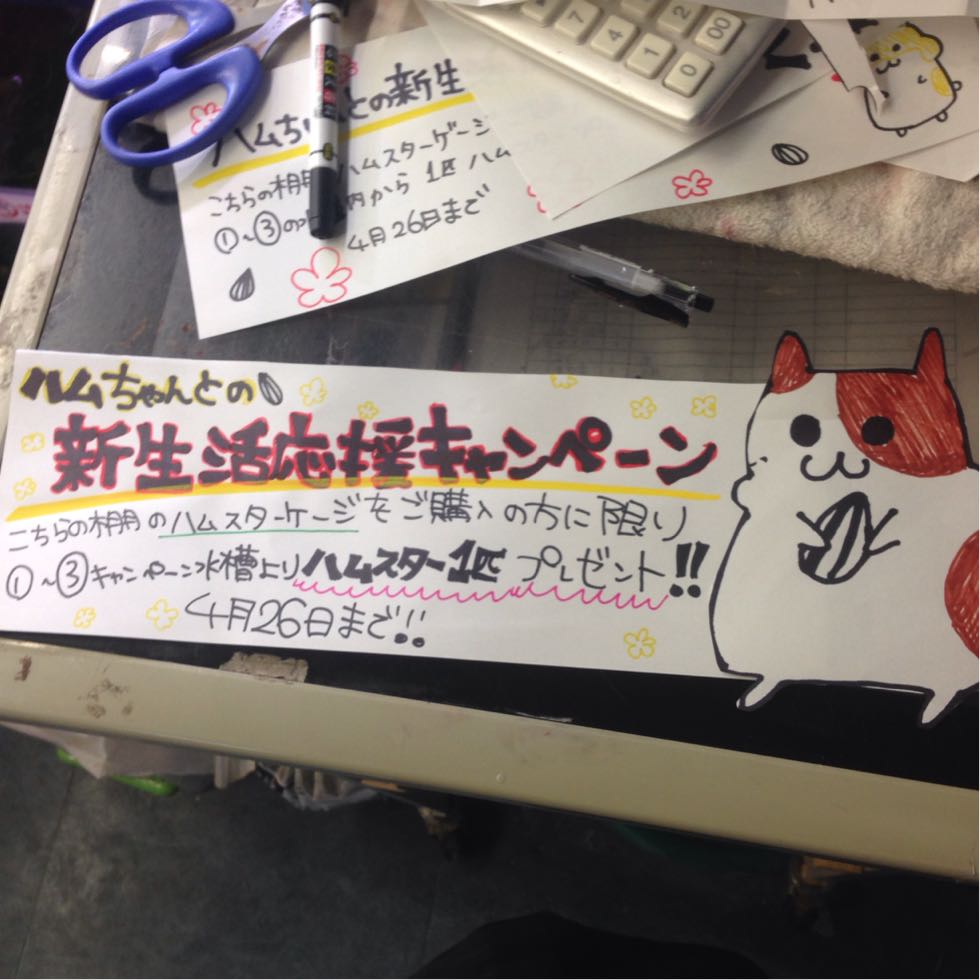 との新生
ハムスターゲージ
こちらの棚
①~③の 内から 1匹 ハム
4月26日まで
7
4
1
2
00
0
ハムちゃんとの
新生活応援キャンペーン
こちらの棚のハムスターケージをご購入の方に限り
①~③キャンペーン水槽よりハムスター1匹プレゼント!!
4月26日まで!!